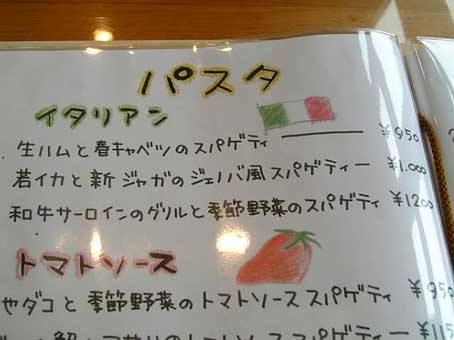 パスタ
イタリアン
生ハムと春キャベツのスパゲティ ¥950
若イカと新ジャガのジェノバ風スパゲティー ¥1.000
和牛サーロインのグリルと季節野菜のスパゲティ ¥1200
トマトソース
やダコと季節野菜のトマトソーススパゲティ ¥950
トマトソース スパゲティ ¥115